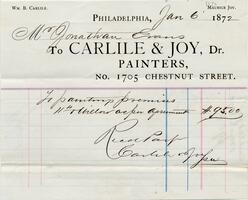 Wm. B. Carlile. Maurice Joy.
Philadelphia, Jan 6 1872
Mr Jonathan Evans
To CARLILE & JOY, Dr.
PAINTERS,
No. 1705 CHESTNUT STREET.
To painting premises
as per agreement $95.00
Recd Payt
Carlile & Joy